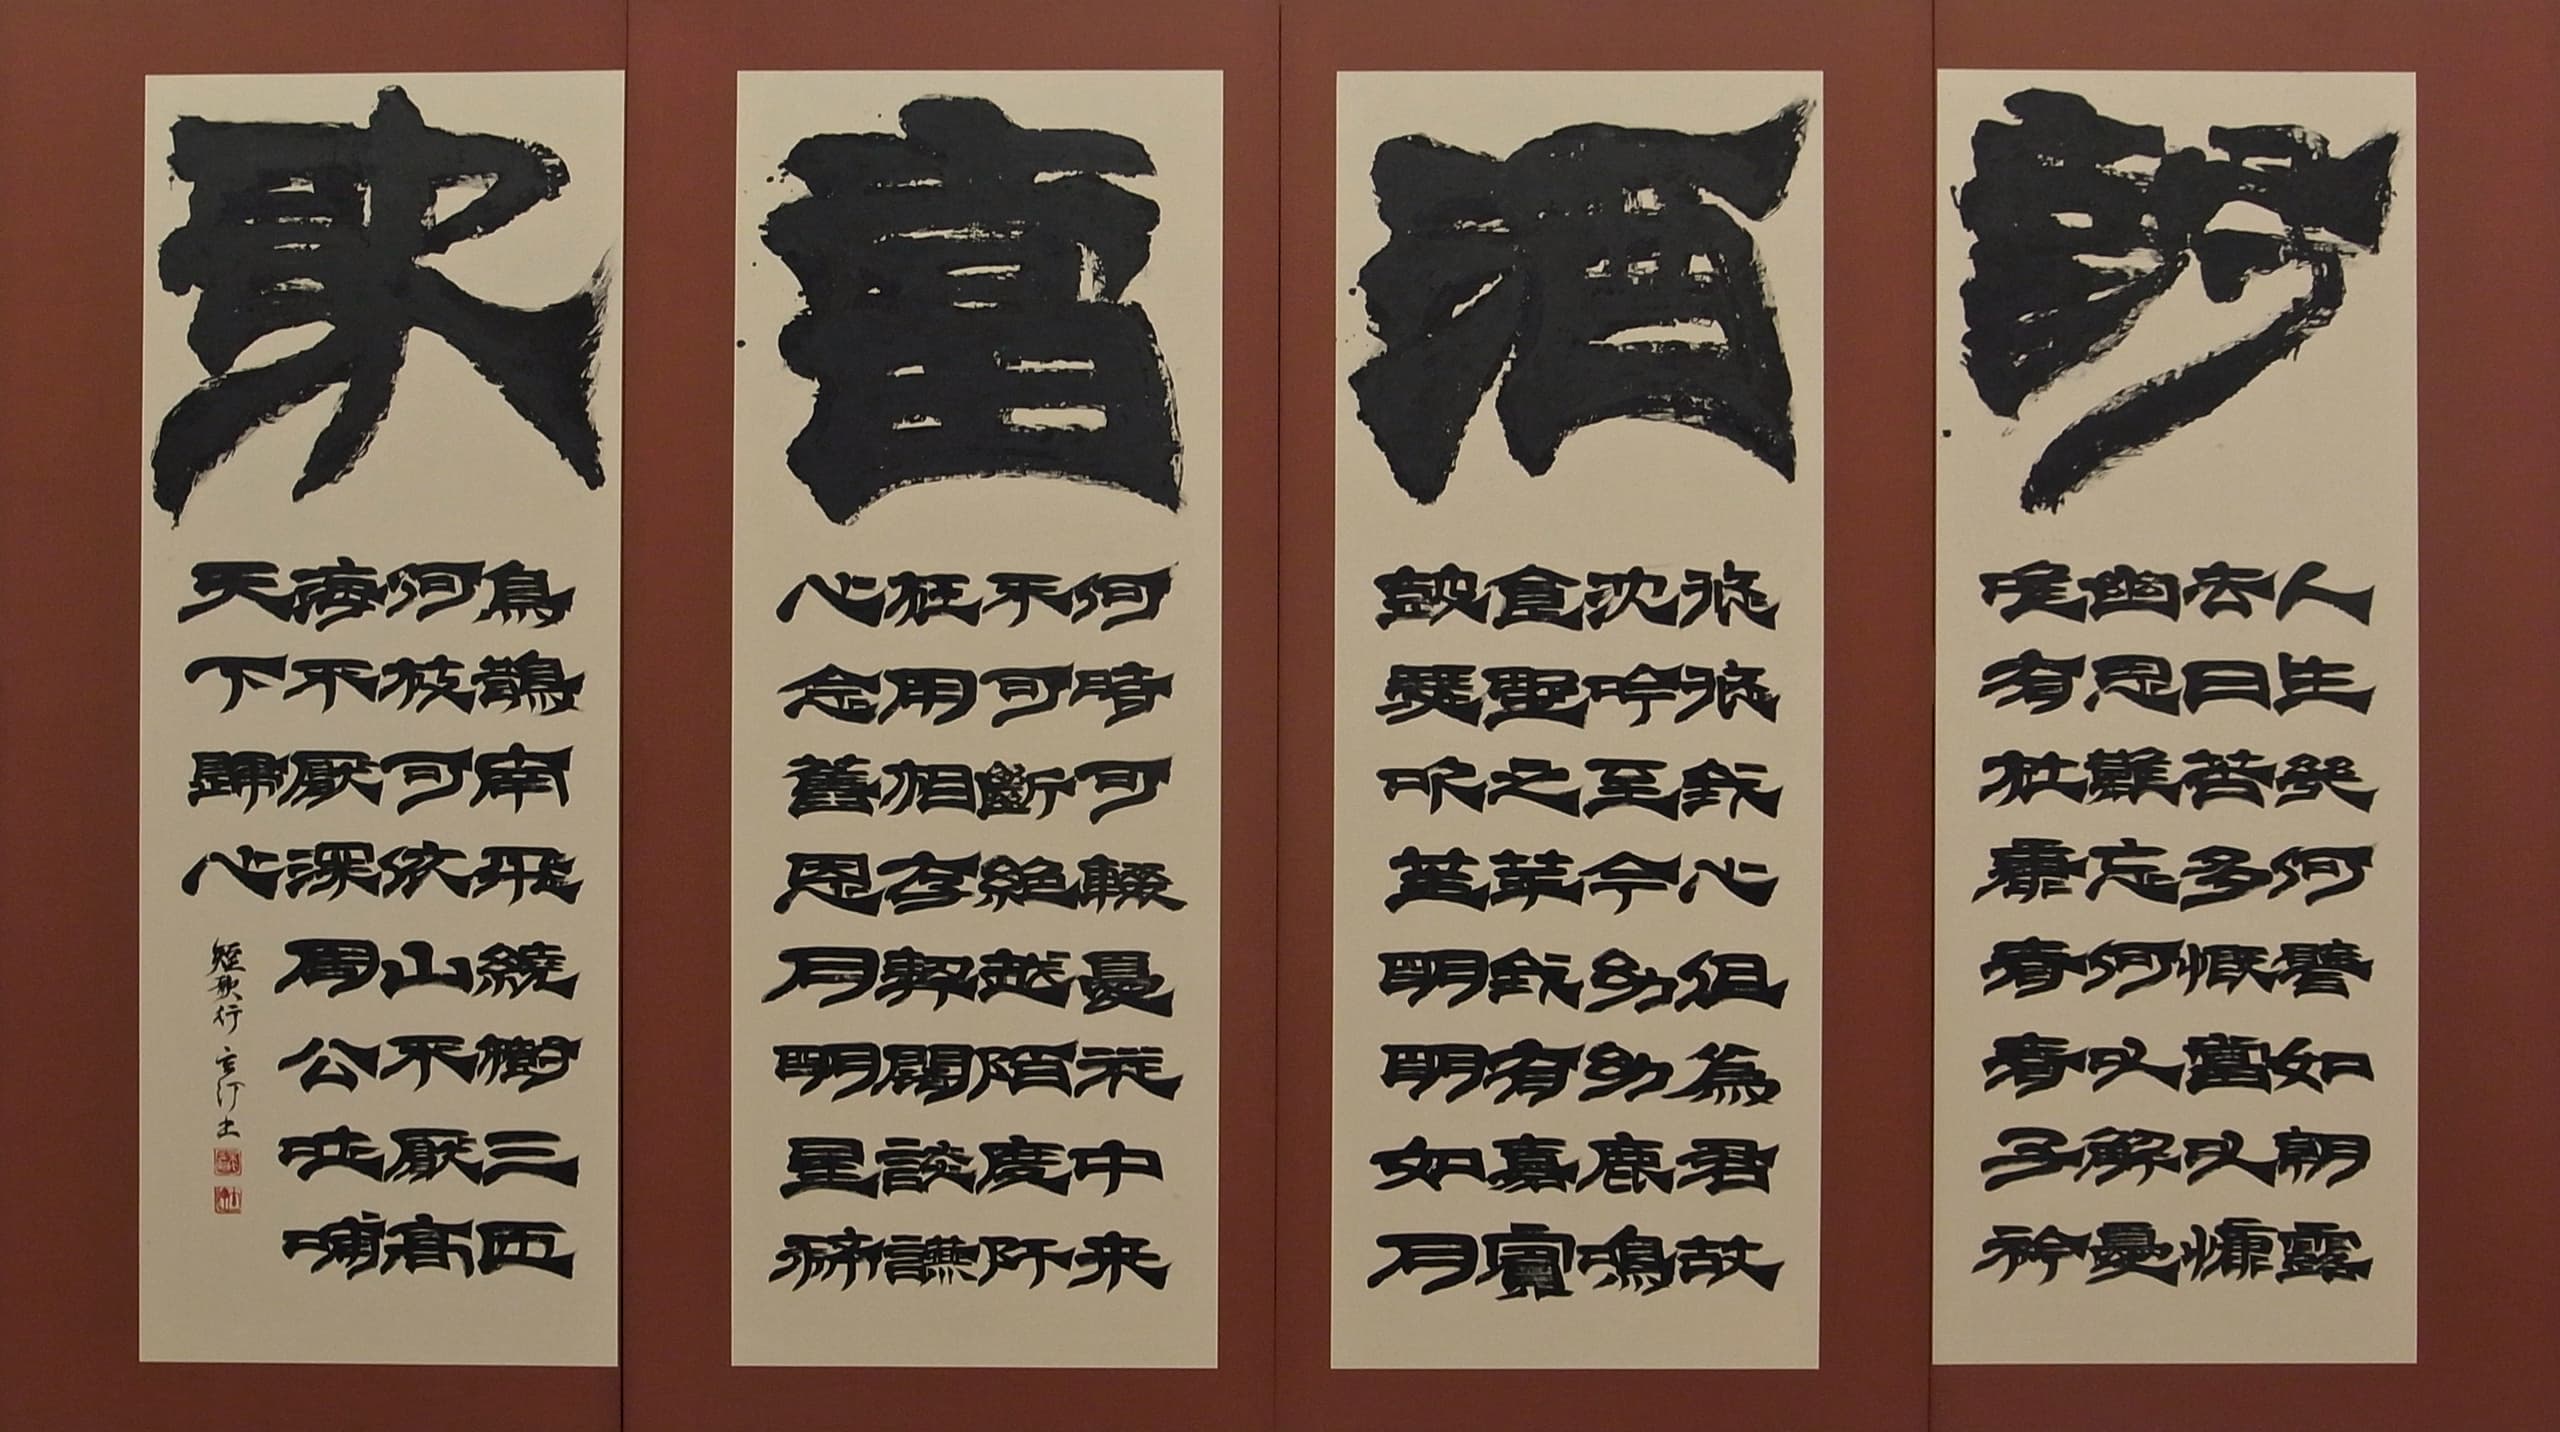 對
人生幾何譬如朝露
去日苦多慨當以慷
幽思難忘何以解憂
唯有杜康青青子衿
酒
悠悠我心但為君故
沈吟至今呦呦鹿鳴
食野之苹我有嘉賓
鼓瑟吹笙明明如月
當
何時可輟憂從中来
不可斷絶越陌度阡
枉用相存契闊談讌
心念舊恩月明星稀
歌
烏鵲南飛繞樹三匝
何枝可依山不厭高
海不厭深周公吐哺
天下歸心
短歌行